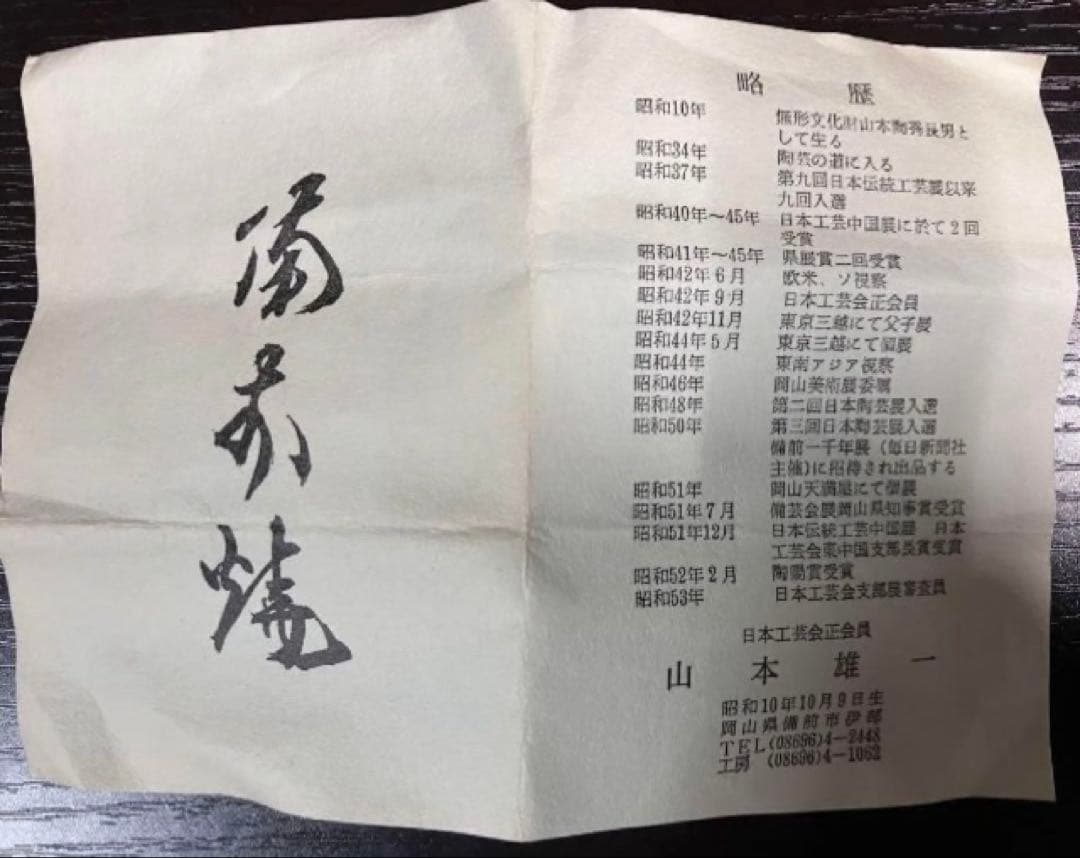 備前焼
略歴
昭和10年 無形文化財山本陶秀長男と
して生る
昭和34年 陶芸の道に入る
昭和37年 第九回日本伝統工芸展以来
九回入選
昭和40年～45年 日本工芸中国展に於て2回
受賞
昭和41年～45年 県展賞二回受賞
昭和42年6月 欧米、ソ視察
昭和42年9月 日本工芸会正会員
昭和42年11月 東京三越にて父子展
昭和44年5月 東京三越にて個展
昭和44年 東南アジア視察
昭和46年 岡山美術展委嘱
昭和48年 第二回日本陶芸展入選
昭和50年 第三回日本陶芸展入選
備前一千年展(毎日新聞社
主催)に招待され出品する
昭和51年 岡山天満屋にて個展
昭和51年7月 備芸会展岡山県知事賞受賞
昭和51年12月 日本伝統工芸中国展 日本
工芸会東中国支部長賞受賞
昭和52年2月 陶陽賞受賞
昭和53年 日本工芸会支部展審査員
日本工芸会正会員
山本雄一
昭和10年10月9日生
岡山県備前市伊部
TEL(08696)4-2448
工房 (08696)4-1062